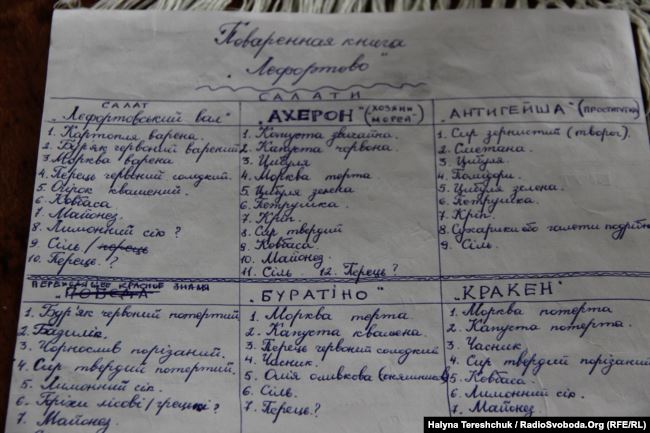 Поваренная книга
„Лефортово"
САЛАТИ
САЛАТ
„Лефортовський вал"
1. Картопля варена.
2. Буряк червоний варений
3 Морква варена
4. Перець червоний солодкий.
5. Огірок квашений.
6. Ковбаса
7. Майонез
8. Лимонний сік ?
9. Сіль / перець
10. Перець. ?
„АХЕРОН" (ХОЗЯИН МОРЕЙ")
1. Капуста звичайна.
2. Капуста червона.
3. Цибуля
4. Морква терта
5. Цибуля зелена
6. Петрушка.
7. Кріп.
8. Сыр твердий
9. Ковбаса.
10. Майонез
11. Сіль 12. Перець ?
„АНТИГЕЙША" (ПРОСТИТУТКА)
1. Сир зернистий (творог)
2. Сметана.
3. Цибуля.
4. Помідори.
5. Цибуля зелена.
6. Петрушка.
7. Кріп.
8. Сухарики або галети
9. Сіль.
ПЕРЕХОДЯЩЕЕ КРАСНОЕ ЗНАМЯ
„ПОБЕДА
1. Бур'як червоний потертий
2. Базилік
3. Чорнослив порізаний.
4. Сир твердий потертий.
5. Лимонний сік.
6. Горіхи лісові / грецькі ?
7. Майонез.
„БУРАТІНО"
1. Морква терта.
2. Капуста квашена.
3. Перець червоний солодкий
4. Часник.
5. Олія оливкова
6. Сіль
7. Перець ?
„КРАКЕН"
1. Морква потерта
2. Капуста потерта.
3. Часник
4. Сир твердий порізаний
5. Ковбаса
6. Лимонний сік.
7. Майонез
Halyna Tereshchuk / RadioSvoboda.Org (RFE/RL)